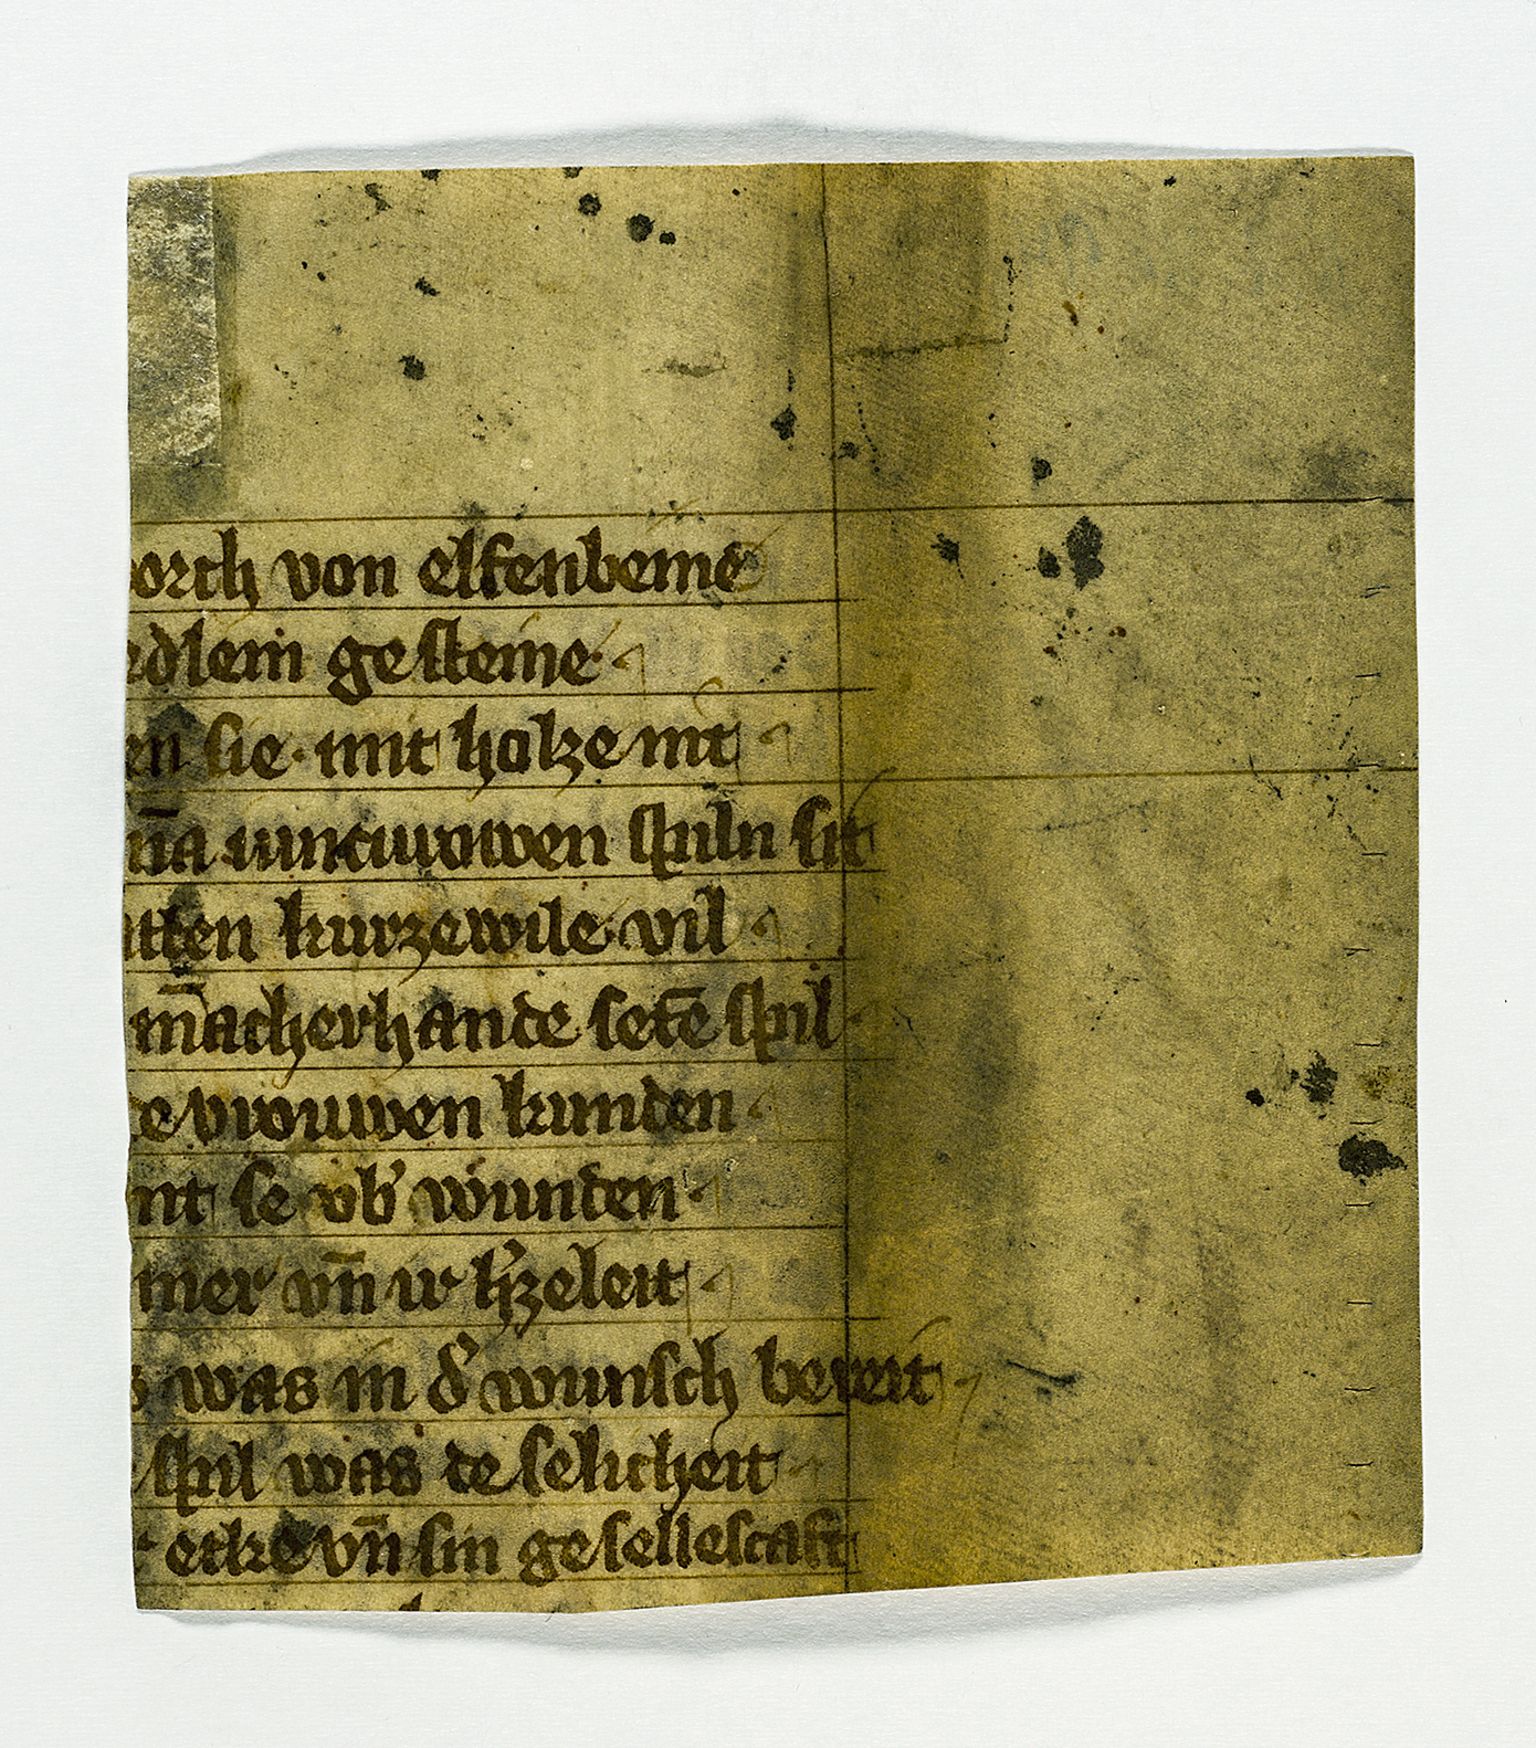 orch von elfenbeine
edlem gesteine
en sie · mit holze nit
ma iuncwrowen spiln sit
tten kurzewile vil
māch&#101;rhande setē spil
de vrouwen kunden
nt se vb' wunden
mer vn̄ ir h'zeleit
s was in d' wunsch bereit
spil was de selicheit
etke vn̄ sin gesellescaft